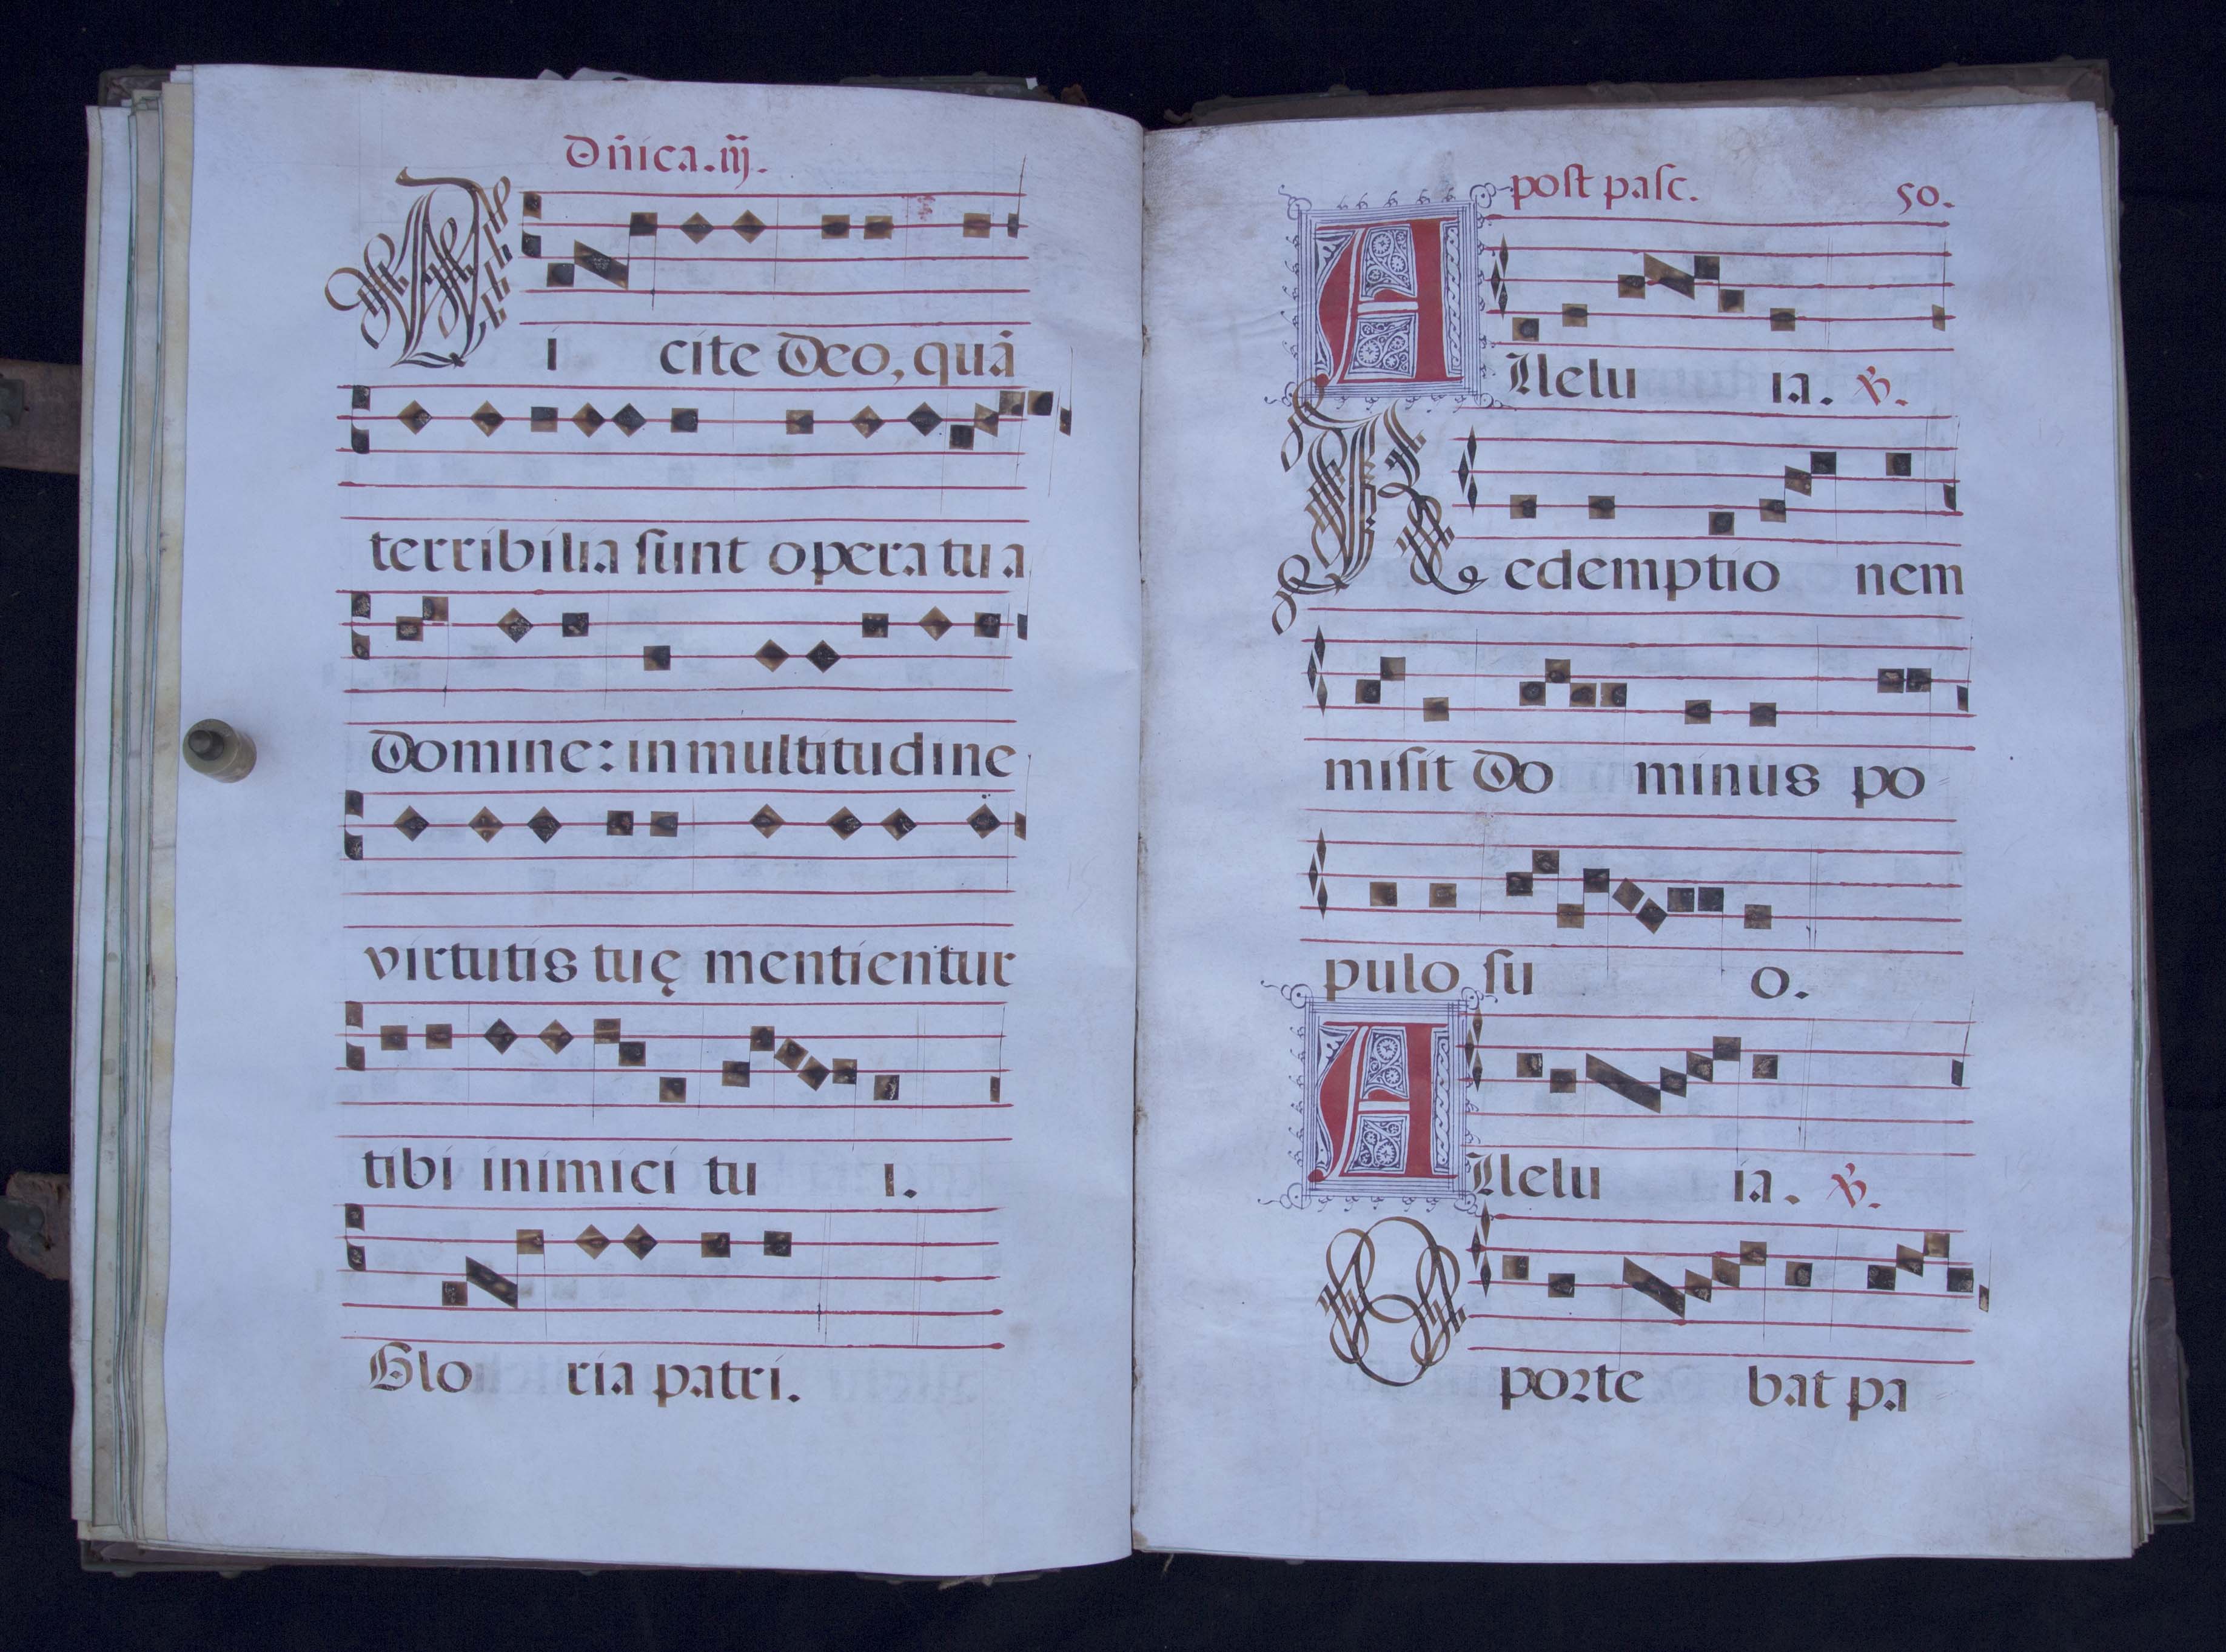 Dñica.iij.
Di cite Deo, quā
terribilia sunt opera tua
Domine: in multitudine
virtutis tuę mentientur
tibi inimici tu i.
Glo ria patri.
post pasc. 50.
Allelu ia. ℣.
Redemptio nem
misit Do minus po
pulo su o.
Allelu ia. ℣.
Oporte bat pa